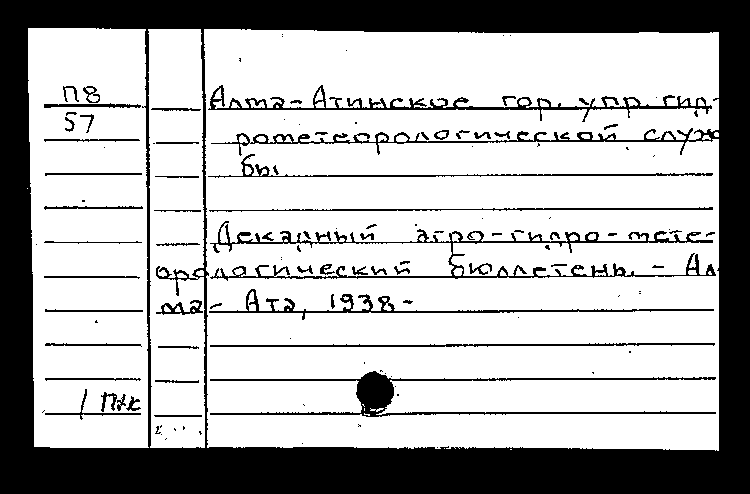 П8
57
Алма-Атинское гор. упр. гид-
рометеорологической служ
бы.
Декадный агро-гидро-мете-
орологический бюллетень. - Ал
ма - Ата, 1938 -